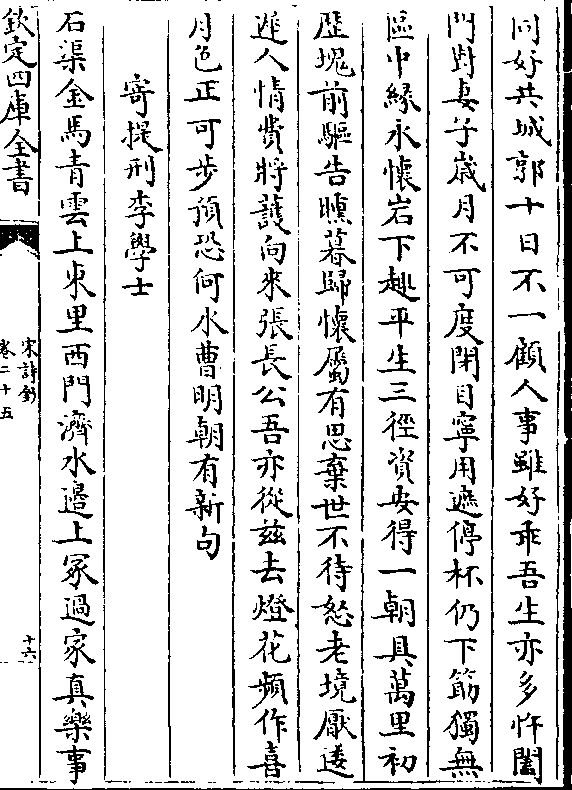 同好共城郭十日不一顧人事雖好乖吾生亦多忤闔
門對妻子歲月不可度閉目寧用遮停杯仍下筯獨無
區中緣永懷岩下趣平生三徑資安得一朝具萬里初
歴塊前驅告曛暮歸懷屬有思棄世不待怒老境厭逶
遲人情費將護向來張長公吾亦從兹去燈花頻作喜
月色正可步預恐何水曹明朝有新句
寄提刑李學士
石渠金馬青雲上東里西門濟水邊上冢過家真樂事
欽定四庫全書
宋詩鈔
卷二十五
十六